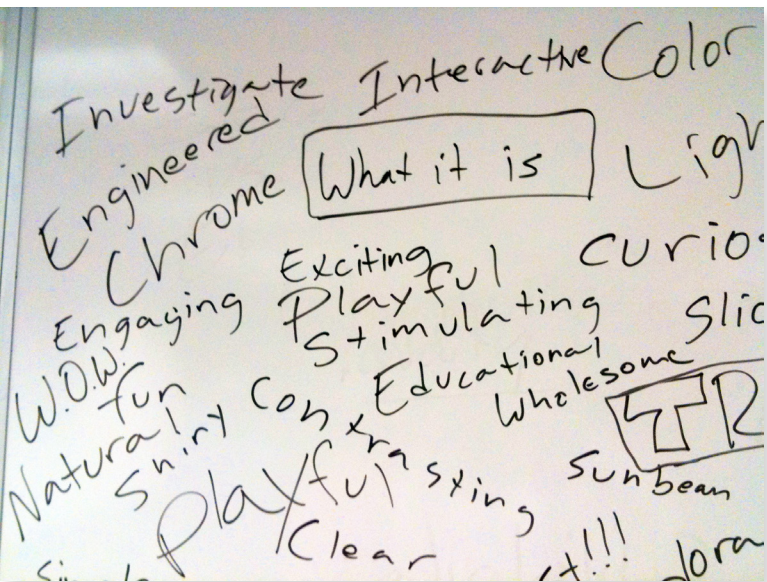 Investigate Interactive Color
Engineered
Chrome
What it is
Exciting
Engaging Playful
Stimulating
W.O.W.
fun
Educational
Wholesome
Natural
Shiny Contrasting
Playful
Sunbeam
Clear